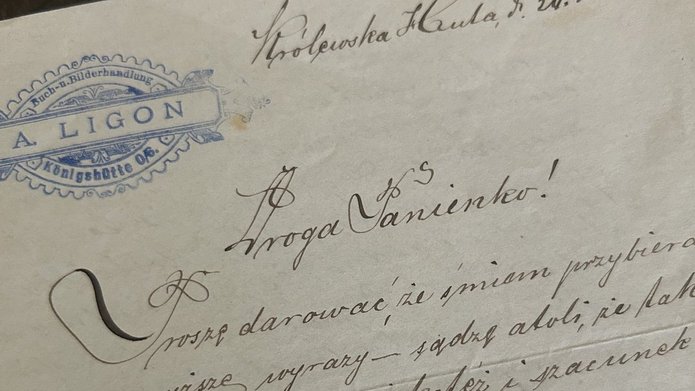 Królewska Huta, d. 24.
Buch- u. Bilderhandlung
A. LIGON
Königshütte O/S.
Droga Panienko!
Proszę darować, że śmiem przybiera
wyrazy — sądzę atoli, że tak
i szacunek